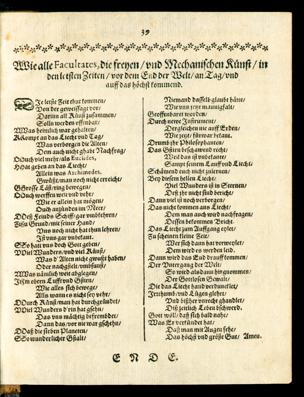 39
Wie alle Facultates, die freyen / vnd Mechanischen Künst / in
den letsten Zeiten / vor dem End der Welt / an Tag / vnd
auff das höchst kommend.
Die letste Zeit that kommen /
Von der geweissagt vor /
Darinn all Künst zusammen /
Solln werden offenbar:
Was heimlich war gehalten /
Kompt an das Liecht vnd Tag /
Was verborgen die Alten /
Dem auch nicht ghabt Nachfrag /
Doch viel mehr / als Euclides,
Hat geben an das Liecht /
Allein was Archimedes,
Gwüst / man noch nicht erreicht /
Grosse Läst ring bewegen /
Auch werffen weit vnd mehr /
Wie er allein hat mögen /
Auch anzünden im Meer /
Deß Feinds Schiff gar vnbethörn /
Grund mit seiner Hand /
Vns noch nicht hat thun lehren /
Ist vns gar vnbekant.
So hat vns doch Gott geben /
Viel Wunders, vnd viel Künst /
Was d'Alten nicht gwüst haben /
Oder nachgdelt / vmbsunst /
Was nämlich weit abgelegen /
In ein ebern Lufft vnd Gstirn /
Wie alles sich bewege /
Alls wann es nicht so sehr /
Durch Künst man hat durchgründet /
Viel Wunders drin hat gsehn /
Das vns mächtig verwundert /
Dann das / vor nie war gschehn /
Daß die sieben Planeten /
So wunderlicher Gstalt
Niemand dasselb glaubt hätte /
Wie vns jetzt mannigfalt /
Geoffenbaret worden /
Durch newe Instrument /
Dergleichen nie auff Erden /
Wie jetzt / fürwar bekant.
Drumb jhr Philosophanten /
Das Gstirn beschawend recht /
Weil das ist vnbekante /
Sampt seinem Lauff vnd Liecht /
Schämend euch nicht zulernen /
Bey disem hellen Liecht /
Viel Wunders ist in Sternen /
Deß jhr nicht sind bericht /
Dann viel ist noch verborgen /
Das nicht kommen ans Liecht /
Dem man auch wird nachfragen /
Dessen bekommen Bricht.
Das Liecht zum Auffgang eylet /
Zu scheinen kleine Zeit /
Wer sich dann hat verweylet /
Dem wird es werden leid.
Dann wird das End drauff kommen /
Der Vntergang der Welt /
So wird alsdann hingnommen /
Der Gottlosen Gewalt /
Die das Liecht hand verdunckelt /
Irrthumb, vnd Lügen glehrt /
Vnd bißher vnrecht ghandlet /
Diß zeitlich Leben bschwerd.
Gott wöll / daß sich bald nahe /
Was Er verkündet hat /
Daß man mit Augen sehe /
Das höchst vnd grösste Gut / Amen.
E N D E.